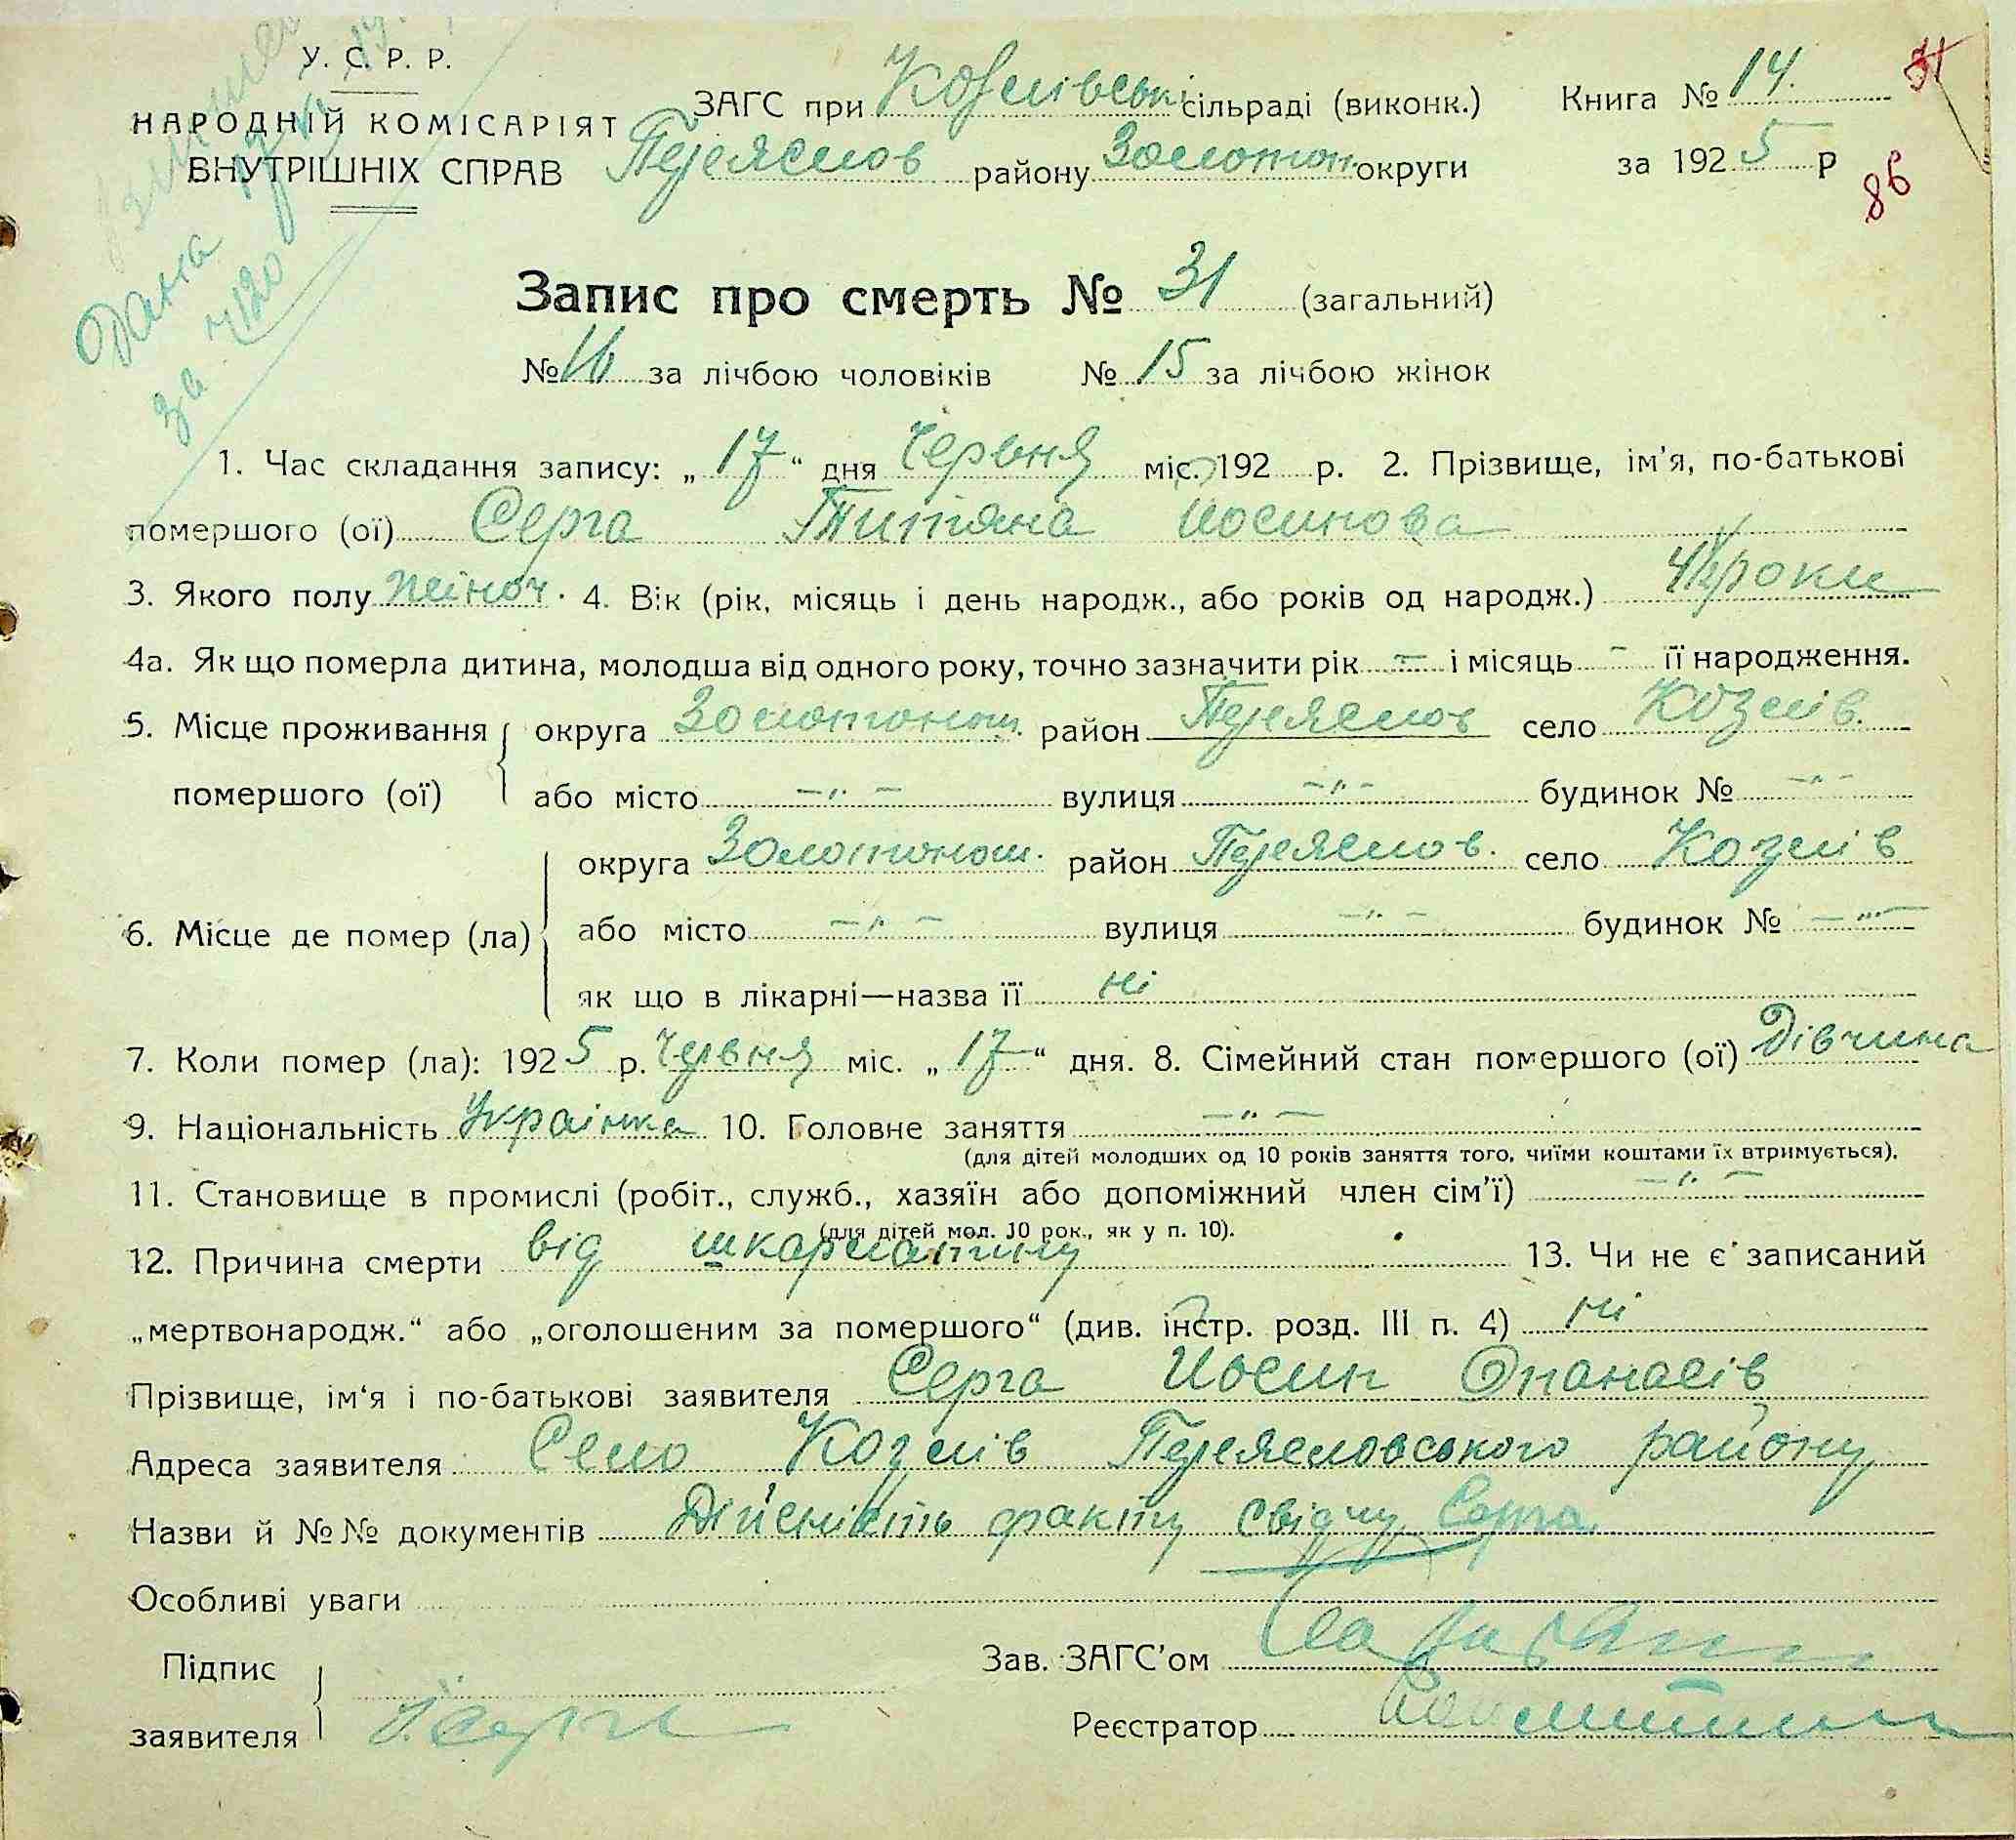 У. С. Р. Р.
НАРОДНІЙ КОМІСАРІЯТ
ВНУТРІШНІХ СПРАВ
ЗАГС при Козлівські сільраді (виконк.)
Переяслов району Золотон. округи
Книга № 14.
за 1925 р
31
86
Дана
за 4120
Запис про смерть № 31 (загальний)
№ 16 за лічбою чоловіків № 15 за лічбою жінок
1. Час складання запису: „17“ дня Червня міс. 192 р. 2. Прізвище, ім'я, по-батькові
помершого (ої) Серга Титяна Иосипова
3. Якого полу жіноч. 4. Вік (рік, місяць і день народж., або років од народж.) 4½ роки
4а. Як що померла дитина, молодша від одного року, точно зазначити рік – і місяць - її народження.
5. Місце проживання округа Золотонош. район Переяслов село Козлів.
помершого (ої) або місто –„– вулиця –„– будинок № –„–
округа Золотонош. район Переяслов. село Козлів
6. Місце де помер (ла) або місто –„– вулиця –„– будинок № –„–
як що в лікарні—назва її ні
7. Коли помер (ла): 1925 р. Червня міс. „17“ дня. 8. Сімейний стан помершого (ої) Дівчина
9. Національність Українка 10. Головне заняття –„–
(для дітей молодших од 10 років заняття того, чиїми коштами їх втримується).
11. Становище в промислі (робіт., служб., хазяїн або допоміжний член сім'ї) –„–
(для дітей мол. 10 рок., як у п. 10).
12. Причина смерти від шкарлатину 13. Чи не є записаний
„мертвонародж.“ або „оголошеним за помершого“ (див. інстр. розд. III п. 4) ні
Прізвище, ім'я і по-батькові заявителя Серга Иосип Опанасів
Адреса заявителя Село Козлів Переясловського району
Назви й №№ документів Дійсність факту свідчу Серга.
Особливі уваги
Підпис
заявителя Й. Серга
Зав. ЗАГС'ом
Реєстратор